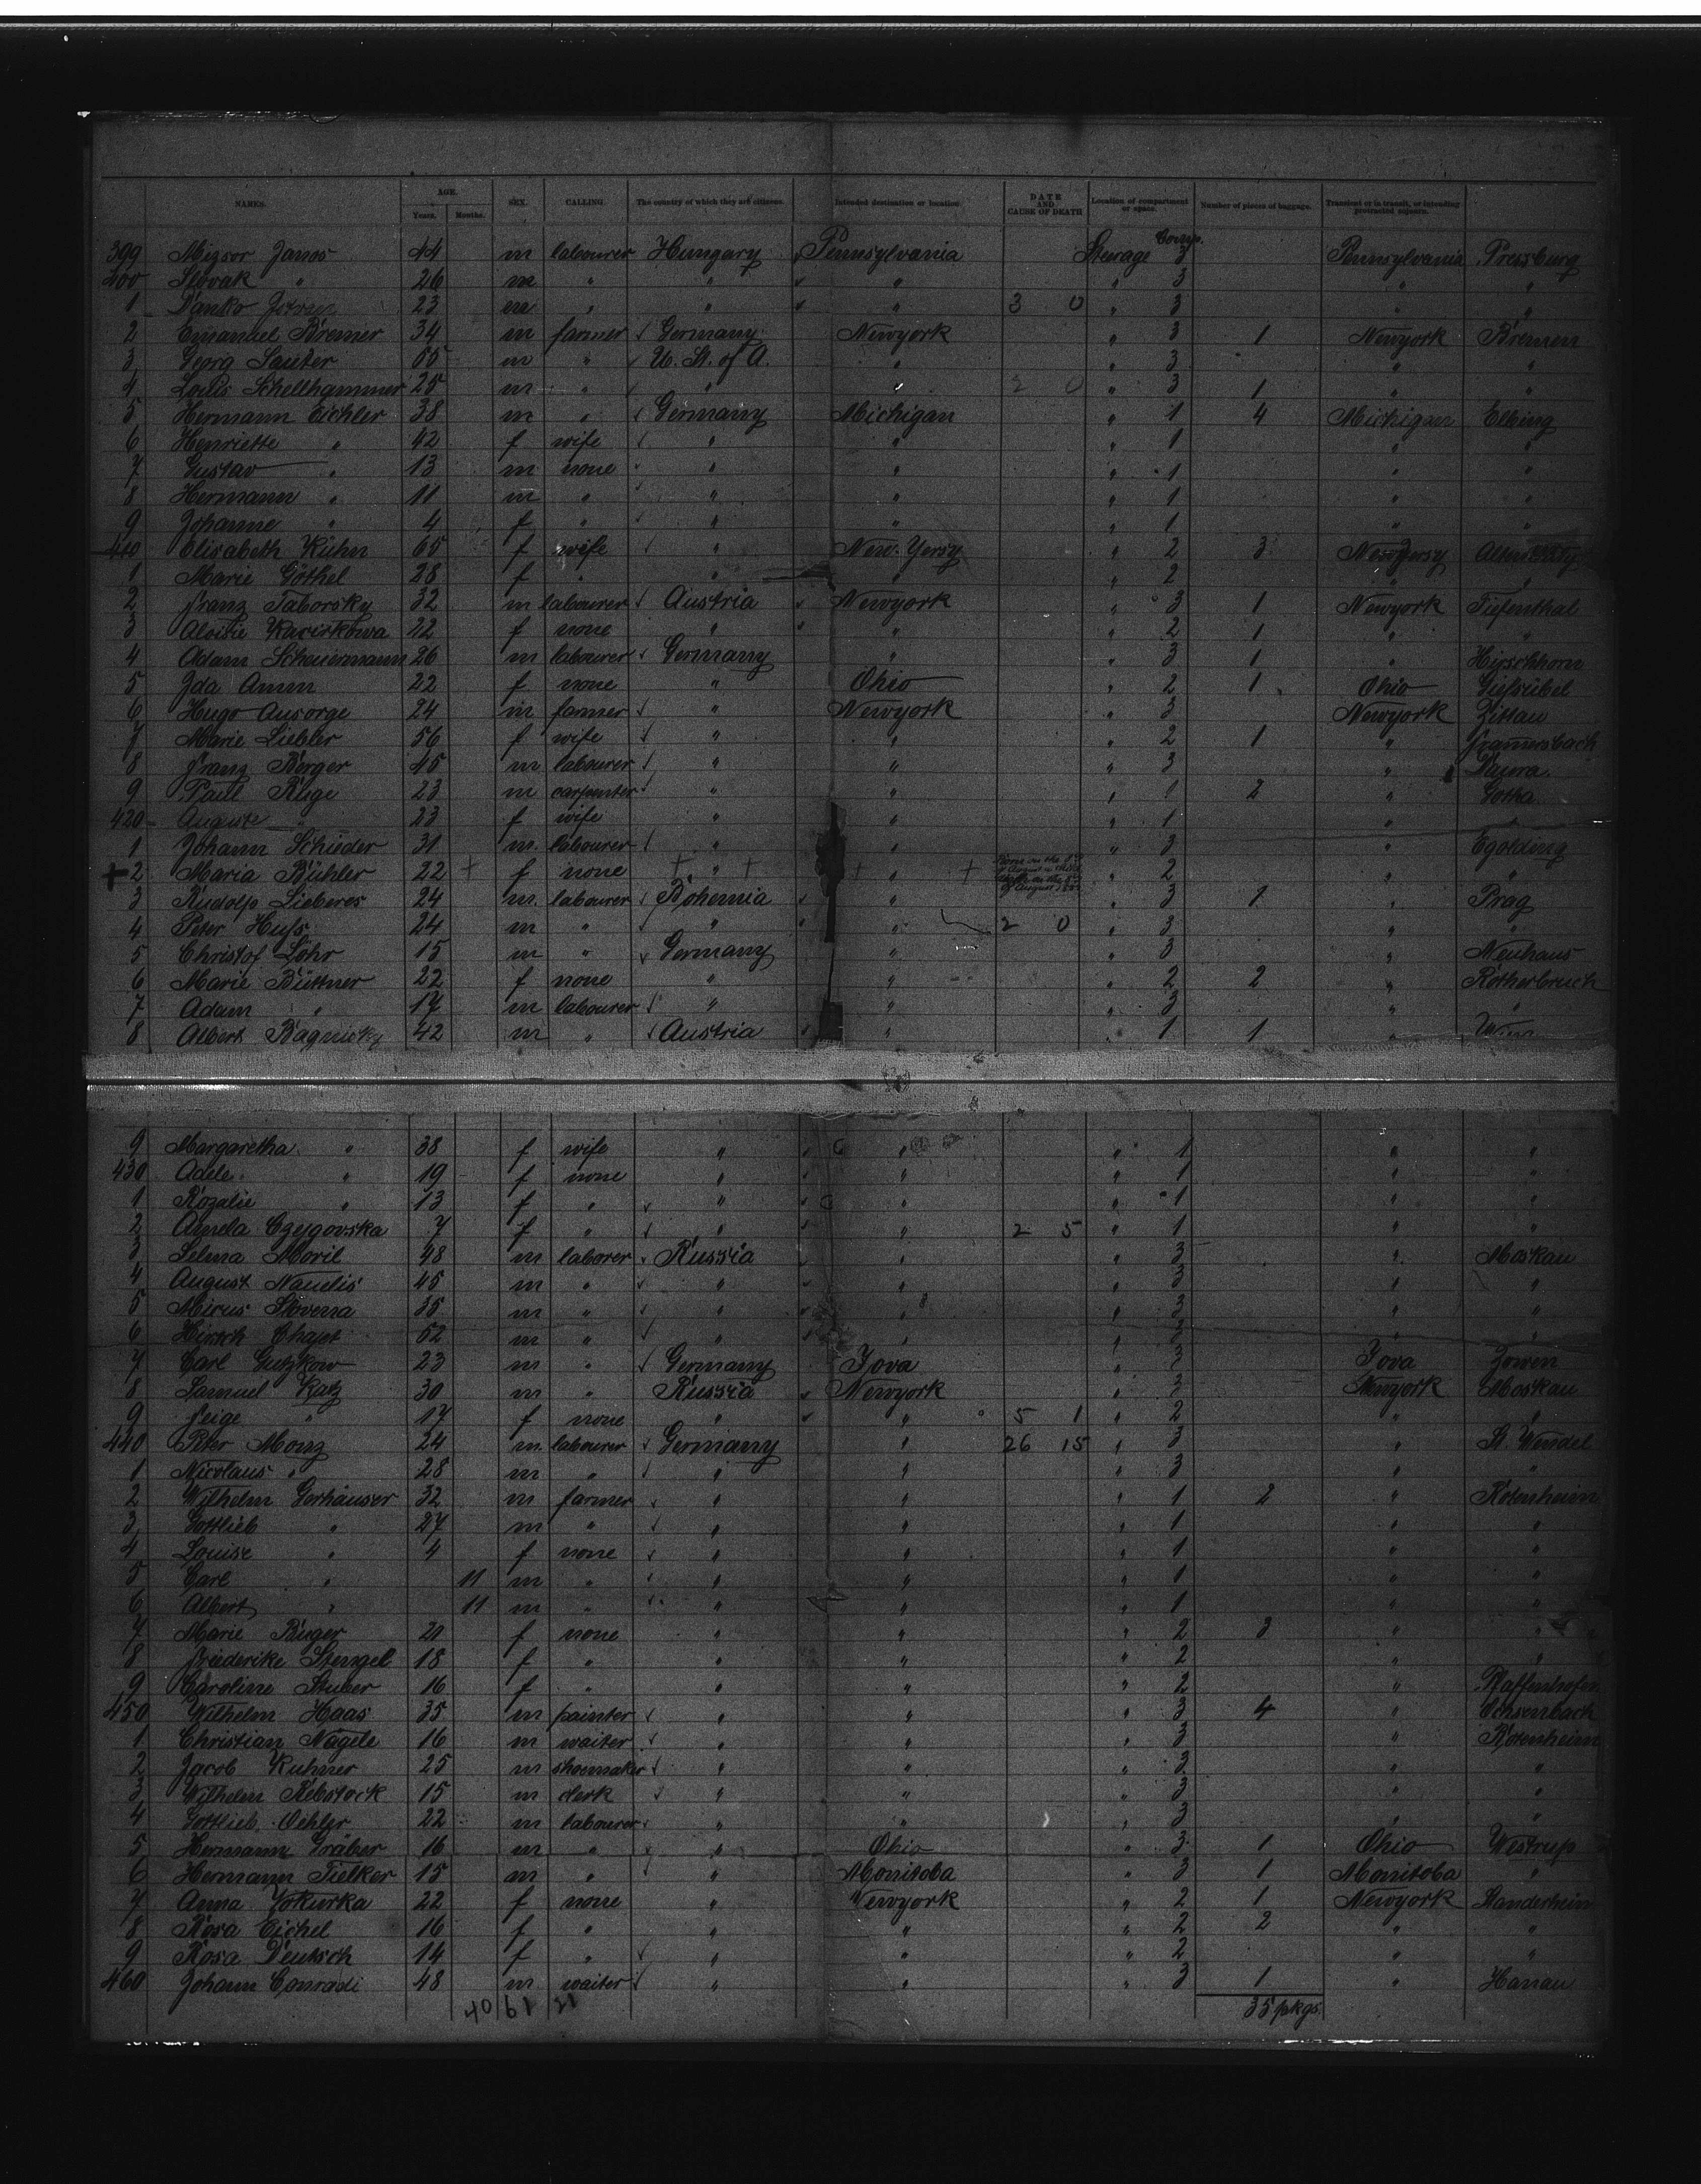 NAMES. AGE. Years. Months. SEX. CALLING. The country of which they are citizens. Intended destination or location. DATE AND CAUSE OF DEATH Location of compartment or space. Number of pieces of baggage. Transient or in transit, or intending protracted sojourn.
399 Mizsor Janos 44 m labourer Hungary Pennsylvania Steerage Comp. 3 Pennsylvania Pressburg
400 Slovak " 26 m " " " " 3 " "
1 Danko 23 m " " " 3 0 " 3 " "
2 Emanuel Bremer 34 m farmer Germany Newyork " 3 1 Newyork Bremen
3 Georg Sauter 65 m " U. St. of A. " " 3 " "
4 Louis Schellhammer 25 m " " " 2 0 " 3 1 " "
5 Hermann Eichler 38 m " Germany Michigan " 1 4 Michigan Elbing
6 Henriette " 42 f wife " " " 1 " "
7 Gustav " 13 m none " " " 1 " "
8 Hermann " 11 m " " " " 1 " "
9 Johanne " 4 f " " " " 1 " "
410 Elisabeth Kühn 65 f wife " New. Yersy " 2 3 Newyersy
1 Marie Göthel 28 f " " " " 2 " "
2 Franz Taborsky 32 m labourer Austria Newyork " 3 1 Newyork Tiefenthal
3 Aloisie Kacirkowa 22 f none " " " 2 1 " "
4 Adam Scheuermann 26 m labourer Germany " " 3 1 " Hirschhorn
5 Ida Amm 22 f none " Ohio " 2 1 Ohio Giefsübel
6 Hugo Ansorge 24 m farmer " Newyork " 3 Newyork Zittau
7 Marie Liebler 56 f wife " " " 2 1 " Frammersbach
8 Franz Berger 45 m labourer " " " 3 "
9 Paul Ruge 23 m carpenter " " " 1 2 " Gotha
420 Auguste " 23 f wife " " " 1 " "
1 Johann Schieder 31 m. labourer " " " 3 " Egolding
+ 2 Maria Bühler 22 + f none + " + + " + " 2 " "
3 Rudolf Lieberes 24 m. labourer Bohemia " " 3 1 " Prag
4 Peter Hufs 24 m " " " 2 0 " 3 " "
5 Christof Löhr 15 m " Germany " " 3 " Neuhaus
6 Marie Büttner 22 f none " " " 2 2 " Rotherbruch
7 Adam " 17 m labourer " " " 3 " "
8 Albert Bagnicky 42 m " Austria " " 1 1 " Wien
9 Margaretha " 38 f wife " " " 1 " "
430 Adele " 19 f none " " " 1 " "
1 Rozalie " 13 f " " " " 1 " "
2 Amela Czeygovska 7 f " " " 2 5 " 1 " "
3 Selma Moril 48 m laborer Russia " " 3 " Moskau
4 August Naudis 45 m " " " " 3 " "
5 Micus Slovena 35 m " " " " 3 " "
6 Hirsch Chajet 52 m " " " " 3 " "
7 Carl Gutzkow 23 m " Germany Iova " 3 Iova Zowen
8 Samuel Katz 30 m " Russia Newyork " 3 Newyork Moskau
9 Feige " 17 f none " " 5 1 " 2 " "
440 Peter Monz 24 m. labourer Germany " 26 15 " 3 " St. Wendel
1 Nicolaus " 28 m " " " " 3 " "
2 Wilhelm Gerhäuser 32 m farmer " " " 1 2 " Rotenheim
3 Gottlieb " 27 m " " " " 1 " "
4 Louise " 4 f none " " " 1 " "
5 Carl " 11 m " " " " 1 " "
6 Albert " 11 m " " " " 1 " "
7 Marie Buger 21 f none " " " 2 3 " "
8 Friederike Stengel 18 f " " " " 2 " "
9 Caroline Stuber 16 f " " " " 2 " Pfaffenhofen
450 Wilhelm Haas 35 m painter " " " 3 4 " Ochsenbach
1 Christian Nägele 16 m waiter " " " 3 " Rotenheim
2 Jacob Kuhner 25 m shoemaker " " " 3 " "
3 Wilhelm Rebstock 15 m clerk " " " 3 " "
4 Gottlieb Oehler 22 m labourer " " " 3 " "
5 Hermann Gräber 16 m " " Ohio " 3 1 Ohio Westrup
6 Hermann Tielker 15 m " " Monitoba " 3 1 Monitoba "
7 Anna Yokurka 22 f none " Newyork " 2 1 Newyork
8 Rosa Eichel 16 f " " " " 2 2 " "
9 Rosa Deutsch 14 f " " " " 2 " "
460 Johann Conradi 48 m waiter " " " 3 1 " Hanau
40 61 21 35 pkgs.